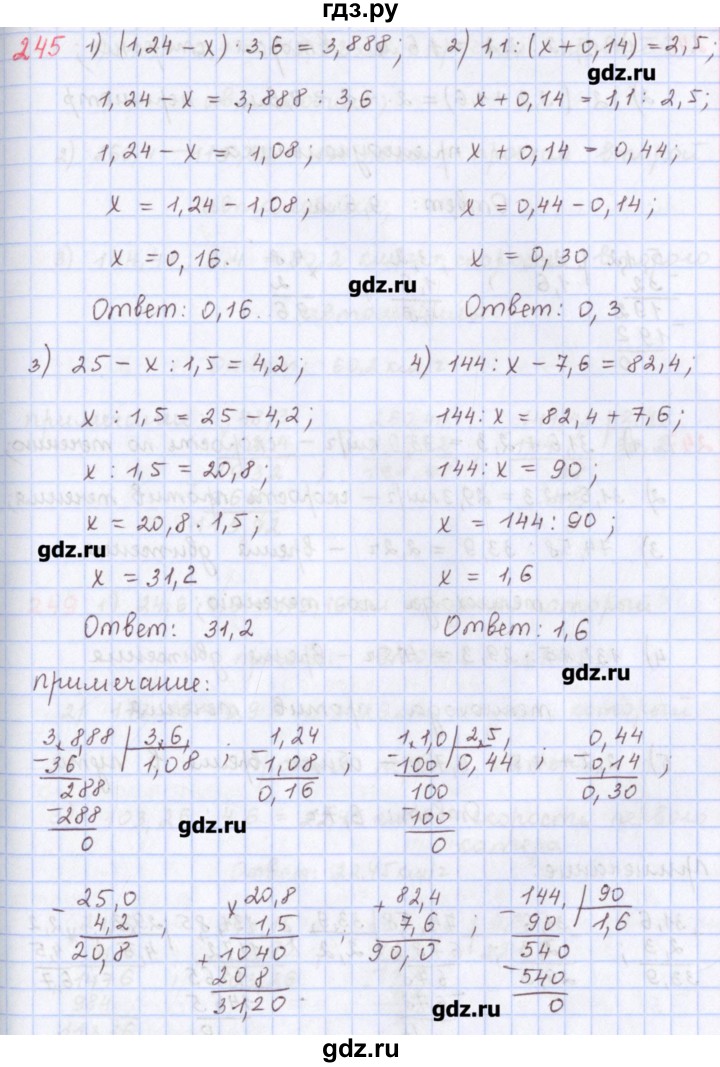 гдз.ру
245 1) (1,24 − x) · 3,6 = 3,888; 2) 1,1 : (x + 0,14) = 2,5;
gdz.ru
1,24 − x = 3,888 : 3,6 x + 0,14 = 1,1 : 2,5;
1,24 − x = 1,08; x + 0,14 = 0,44;
x = 1,24 − 1,08; x = 0,44 − 0,14;
x = 0,16. x = 0,30.
gdz.ru
Ответ: 0,16. Ответ: 0,3
3) 25 − x : 1,5 = 4,2; 4) 144 : x − 7,6 = 82,4;
x : 1,5 = 25 − 4,2; 144 : x = 82,4 + 7,6;
x : 1,5 = 20,8; 144 : x = 90;
x = 20,8 · 1,5; x = 144 : 90;
gdz.ru
x = 31,2 x = 1,6
Ответ: 31,2 Ответ: 1,6
gdz.ru
Примечание:
3,888 | 3,6 ; 1,24 1,1,0 | 2,5 ; 0,44
−36 1,08 −1,08 ; −100 0,44 −0,14 ;
288 0,16 100 0,30
−288 −100
0 0
gdz.ru
−25,0 ×20,8 +82,4 −144 | 90
4,2 ; 1,5 ; 7,6 ; 90 1,6
20,8 +1040 90,0 540
208 −540
31,20 0
gdz.ru
gdz.ru